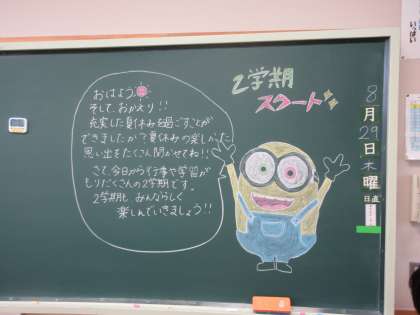 おはよう
そして、おかえり!!
充実した夏休みを過ごすことが
できましたか?夏休みの楽しかった
思い出をたくさん聞かせてね!!
さて、今日から行事や学習が
もりだくさんの2学期です。
2学期も みんならしく
楽しんでいきましょう!!
2学期
スタート
8月29日木曜
日直
いっぱい